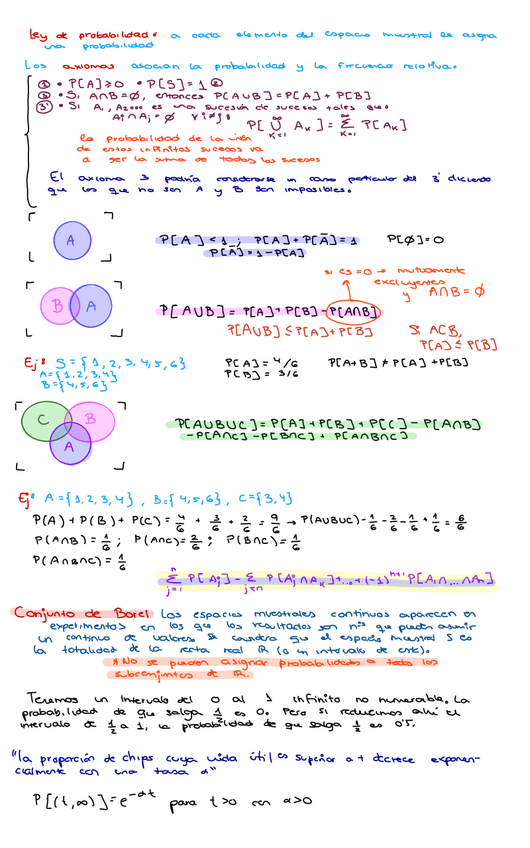 Ley de probabilidad: a cada elemento del espacio muestral le asigna
una probabilidad
Los axiomas asocian la probabilidad y la frecuencia relativa.
① • P[A]≥0 • P[S]=1 ②
③ • Si A∩B=∅, entonces P[A∪B]=P[A]+P[B]
③' • Si A₁, A₂... es una sucesión de sucesos tales que:
Ai∩Aj=∅ ∀i≠j:
P[⋃ₖ₌₁^∞ Aₖ]=∑ₖ₌₁^∞ P[Aₖ]
la probabilidad de la unión
de estos infinitos sucesos va
a ser la suma de todos los sucesos
El axioma 3 podría considerarse un caso particular del 3' diciendo
que los que no son A y B son imposibles.
A
P[A]≤1; P[A]+P[Ā]=1 P[∅]=0
P[Ā]=1-P[A]
si es=0→ mutuamente
excluyentes
y A∩B=∅
B A
P[A∪B]=P[A]+P[B]-P[A∩B]
P[A∪B]≤P[A]+P[B]
Si A⊂B,
P[A]≤P[B]
Ej: S={1,2,3,4,5,6}
A={1,2,3,4}
B={4,5,6}
P[A]=4/6
P[B]=3/6
P[A+B]≠P[A]+P[B]
C B
A
P[A∪B∪C]=P[A]+P[B]+P[C]-P[A∩B]
-P[A∩C]-P[B∩C]+P[A∩B∩C]
Ej: A={1,2,3,4}, B={4,5,6}, C={3,4}
P(A)+P(B)+P(C)=4/6+3/6+2/6=9/6→P(A∪B∪C)-1/6-2/6-1/6+1/6=6/6
P(A∩B)=1/6; P(A∩C)=2/6; P(B∩C)=1/6
P(A∩B∩C)=1/6
∑ⱼ₌₁ⁿ P[Aj]-∑ P[Aj∩Aₖ]+...+(-1)ⁿ⁺¹P[A₁∩...∩Aₙ]
Conjunto de Borel Los espacios muestrales continuos aparecen en
experimentos en los que los resultados son nºs que pueden asumir
un continuo de valores. Se considera que el espacio muestral S es
la totalidad de la recta real ℝ (o un intervalo de esta).
*No se pueden asignar probabilidades a todos los
subconjuntos de ℝ.
Tenemos un intervalo del 0 al 1 infinito no numerable. La
probabilidad de que salga 1/2 es 0. Pero si reducimos ahí el
intervalo de 1/2 a 1, la probabilidad de que salga 1/2 es 0'5.
"la proporción de chips cuya vida útil es superior a t decrece exponen-
cialmente con una tasa α"
P[(t,∞)]=e^-αt para t>0 con α>0